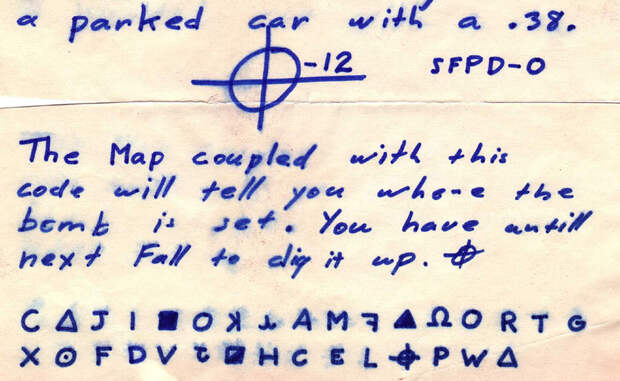 a parked car with a .38.
⌖-12 SFPD-0
The Map coupled with this
code will tell you where the
bomb is set. You have untill
next Fall to dig it up. ⌖
C Δ J I ■ O ꓘ ⅄ A M ꟻ ▲ Ω O R T G
X ⊙ F D V Ʇ ◪ H C E L ⌖ P W Δ